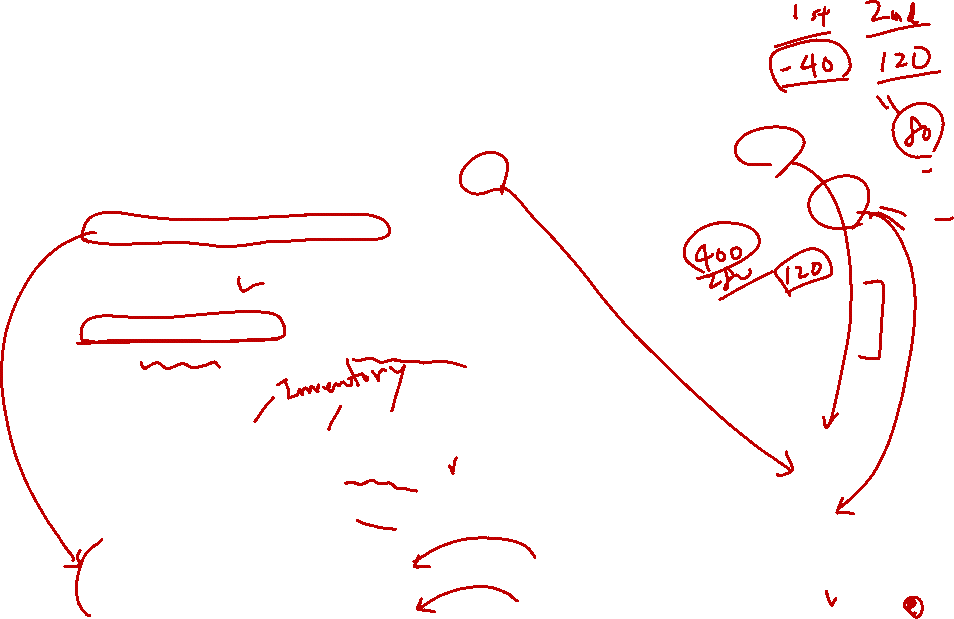 1st 2nd
-40 120
80
400
120
Inventory